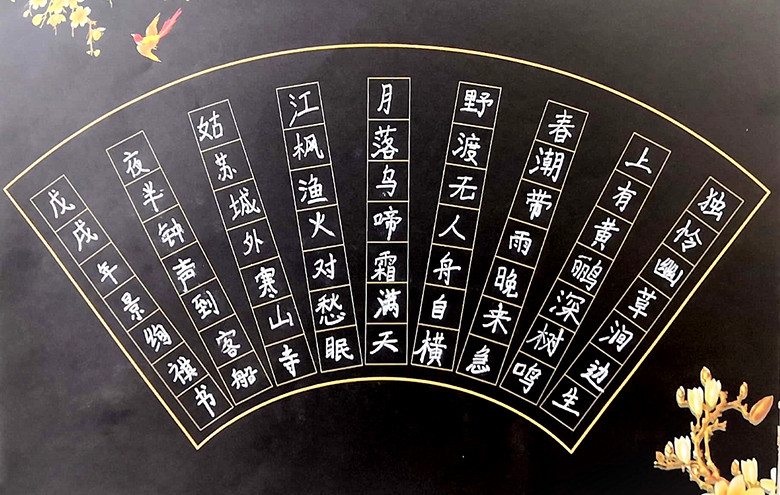 独怜幽草涧边生
上有黄鹂深树鸣
春潮带雨晚来急
野渡无人舟自横
月落乌啼霜满天
江枫渔火对愁眠
姑苏城外寒山寺
夜半钟声到客船
戊戌年景绚祺书